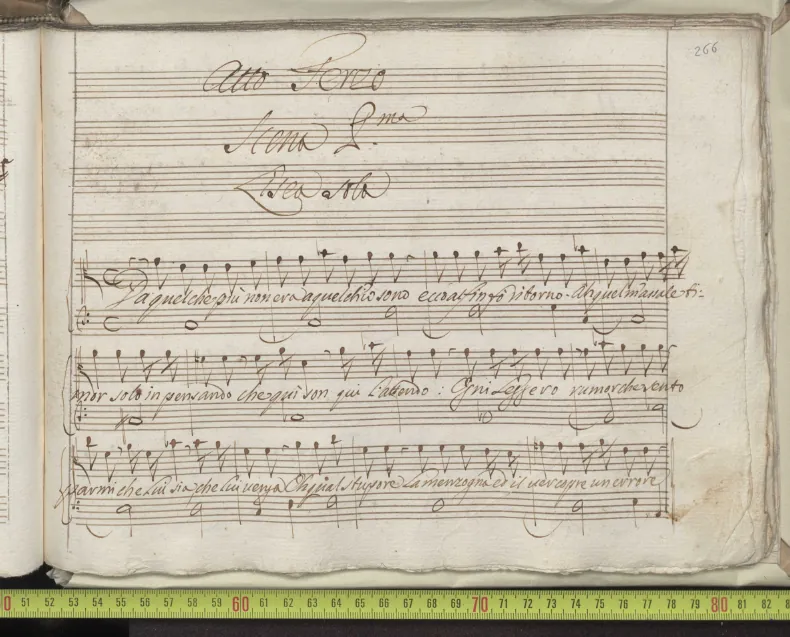 266
Atto Terzo
Scena P.ma
Lisea sola
Da quel che più non era a quel ch'io sono ecco al fin ritorno. Ah quel m'assale ti-
mor solo in pensando che qui son qui l'attendo : Ogni leggero rumor che sento
parmi che lui sia, che lui venga Oh qual stupore La menzogna ed il ver copre un errore
0 51 52 53 54 55 56 57 58 59 60 61 62 63 64 65 66 67 68 69 70 71 72 73 74 75 76 77 78 79 80 81 82